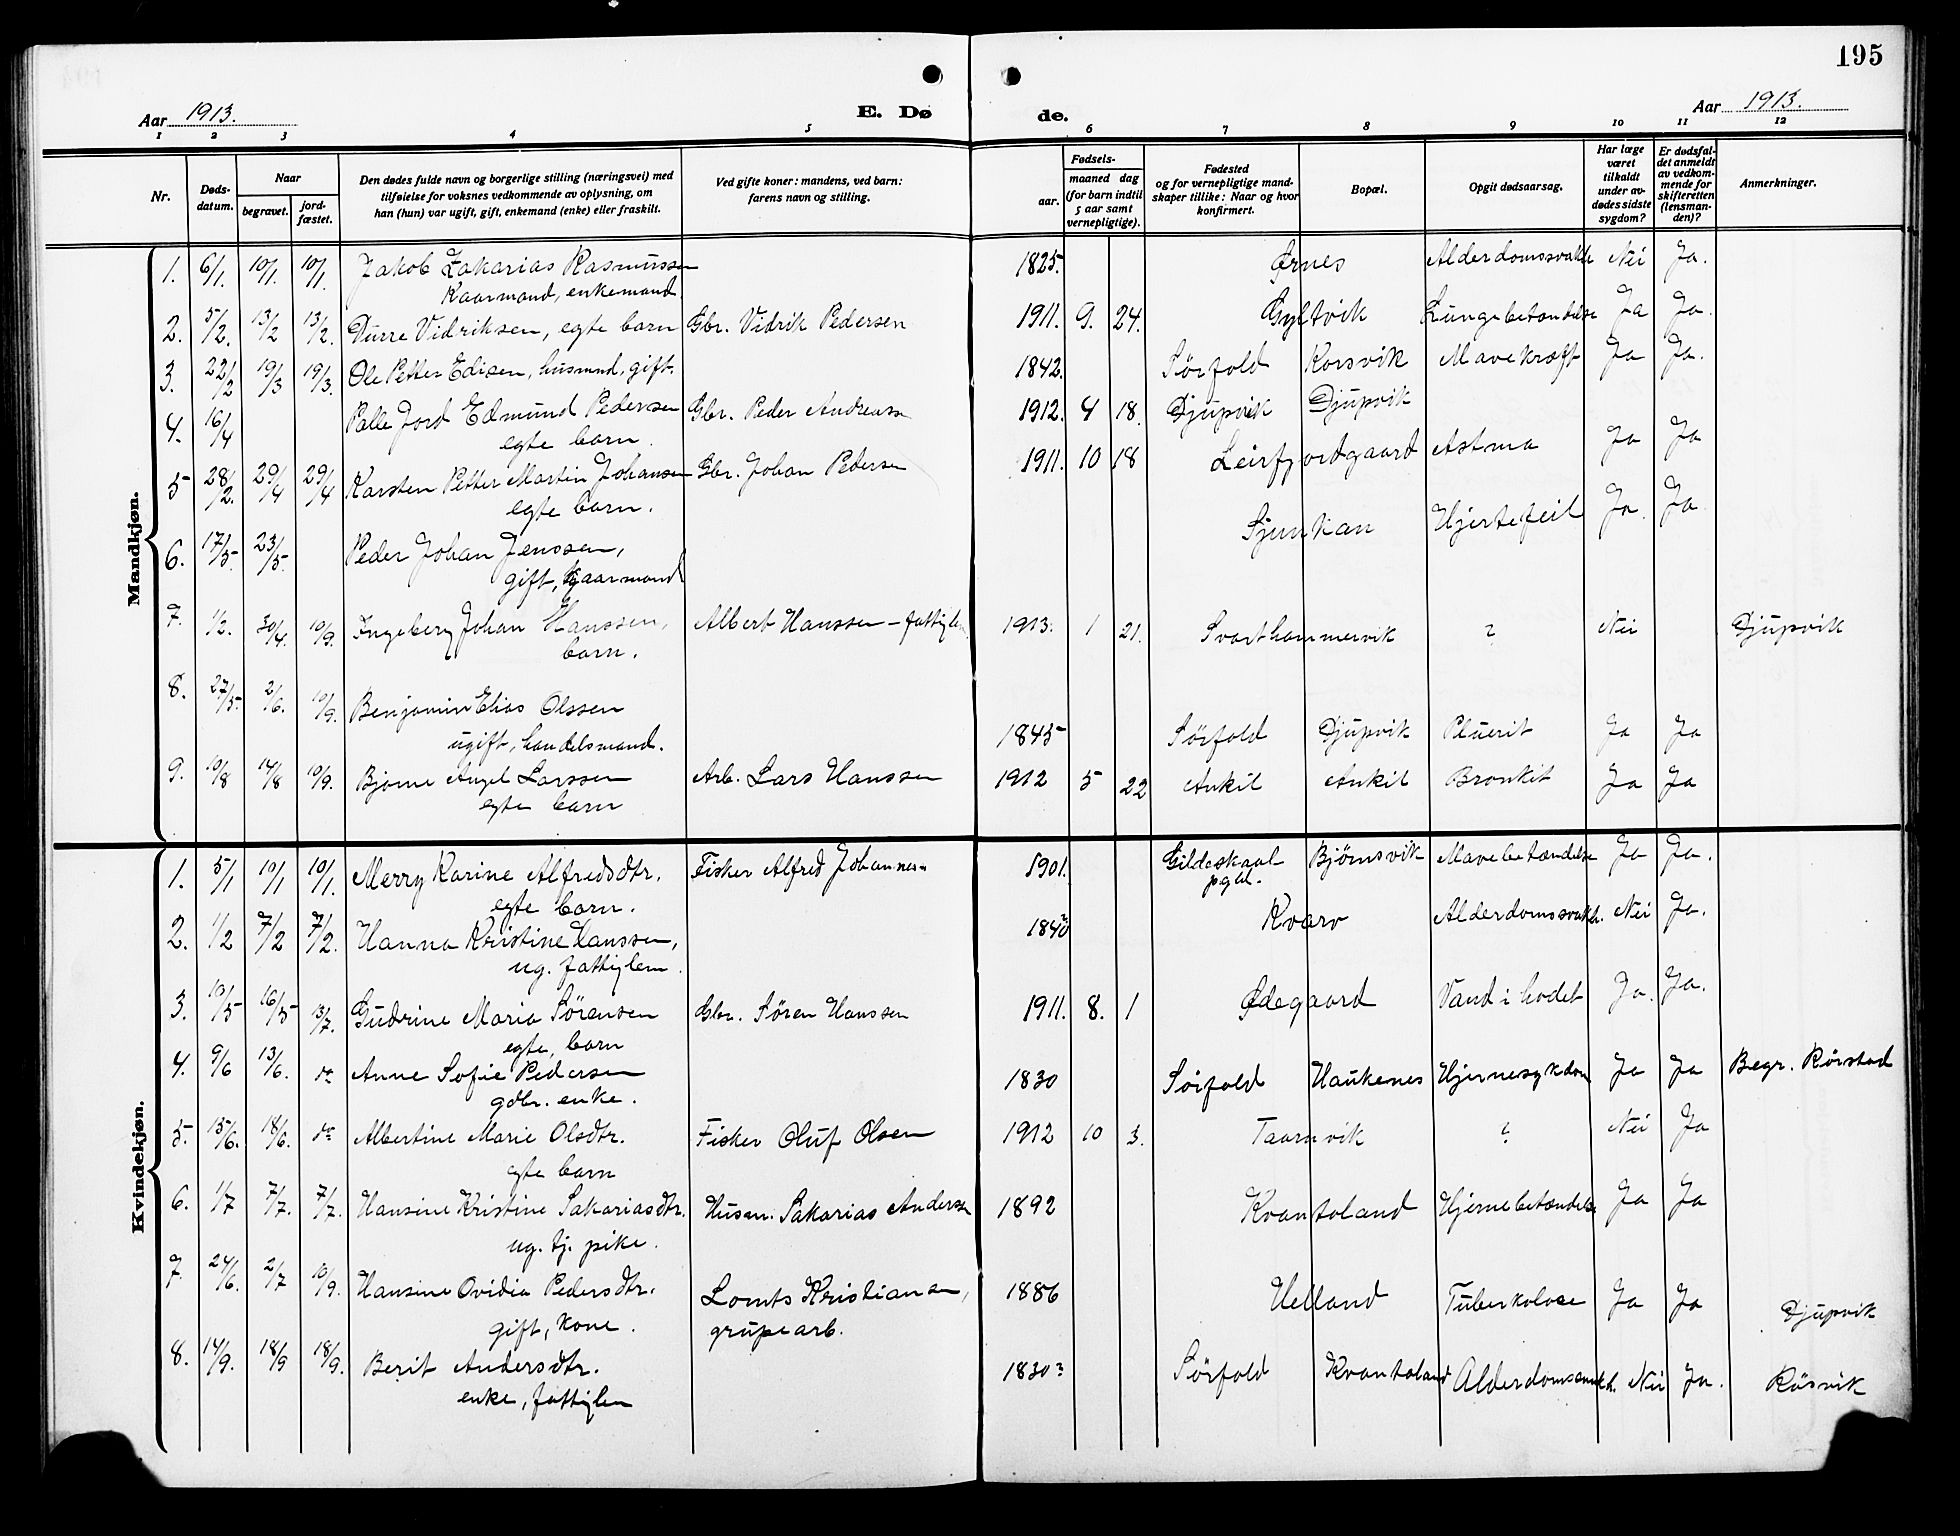 195
Aar 1913.
E. Dø
de.
Aar 1913.
1 2 3 4 5 6 7 8 9 10 11 12
Nr.
Døds-
datum.
Naar
begravet.
jord-
fæstet.
Den dødes fulde navn og borgerlige stilling (næringsvei) med
tilføielse for voksnes vedkommende av oplysning, om
han (hun) var ugift, gift, enkemand (enke) eller fraskilt.
Ved gifte koner: mandens, ved barn:
farens navn og stilling.
Fødsels-
aar.
maaned dag
(for barn indtil
5 aar samt
vernepligtige).
Fødested
og for vernepligtige mand-
skaper tillike: Naar og hvor
konfirmert.
Bopæl.
Opgit dødsaarsag.
Har læge
været
tilkaldt
under av-
dødes sidste
sygdom?
Er dødsfal-
det anmeldt
av vedkom-
mende for
skifteretten
(lensman-
den)?
Anmerkninger.
Mandkjøn.
1. 6/1. 10/1. 10/1. Jakob Zakarias Rasmussen 1825. Ørnes Alderdomssvakh Nei Ja.
Kaarmand, enkemand.
2. 5/2. 13/2 13/2. Durre Vidriksen, egte barn Gbr. Vidrik Pedersen 1911. 9. 24. Gyltvik Lungebetændelse Ja Ja.
3. 22/2 19/3 19/3. Ole Petter Edisen, husmnd, gift. 1842. Sørfold Korsvik Mavekræft Ja Ja.
4. 16/4 Palle Jord Edmund Pedersen Gbr. Peder Andreass 1912. 4 18. Djupvik Djupvik
egte barn.
5 28/2. 29/4 29/4 Karsten Petter Martin Johansen Gbr. Johan Pedersen 1911. 10 18 Leirfjordgaard Astma Ja Ja
egte barn.
6. 17/5. 23/5. Peder Johan Jenssen, Sjunkan Hjertefeil Ja. Ja.
gift, kaarmand
7. 1/2. 30/4. 10/9. Ingeberg Johan Hanssen, Albert Hanssen - fattiglem 1913. 1 21. Svarthammervik ? Nei Djupvik
barn.
8. 27/5. 2/6. 10/9. Benjamin Elias Olssen
ugift, handelsmand. 1845 Sørfold Djupvik Pluerit Ja Ja
9. 10/8 14/8 10/9. Bjarne Angel Larssen Arb. Lars Hanssen 1912 5 22 Ankil Ankil Bronkit Ja Ja
egte barn
Kvindekjøn.
1. 5/1 10/1 10/1. Merry Karine Alfredsdtr. Fisker Alfred Johannes 1901. Gildeskaal Bjørnsvik Mavebetændelse Ja Ja.
egte barn. pgld.
2. 1/2 7/2 7/2. Hanna Kristine Hanssen, 1840 Kvarv Alderdomssvakh. Nei Ja.
ug. fattiglem.
3. 10/5 16/5 13/7. Gudrine Maria Sørensen Gbr. Søren Hanssen 1911. 8. 1 Ødegaard Vand i hodet Ja. Ja.
egte, barn
4. 9/6 13/6. do Anne Sofie Pedersen 1830 Sørfold Haukenes Hjernesykdom Ja Ja Begr. Rørstad
gdbr. enke.
5. 15/6. 18/6. do Albertine Marie Olsdtr. Fisker Oluf Olsen 1912 10 3. Taarnvik ? Nei Ja
egte barn
6. 1/7 7/7. 7/7. Hansine Kristine Sakariasdtr. Husm. Sakarias Anderss 1892 Kvantoland Hjernebetændelse Ja Ja
ug. tj. pike.
7. 24/6. 2/7 10/9. Hansine Ovidia Pedersdtr. Lornts Kristiansen, 1886 Helland Tuberkolose Ja Ja Djupvik
gift, kone. grubearb.
8. 14/9. 18/9 18/9. Berit Andersdtr. 1830? Sørfold Kvantoland Alderdomssvakh. Nei Ja. Røsvik
enke, fattiglem